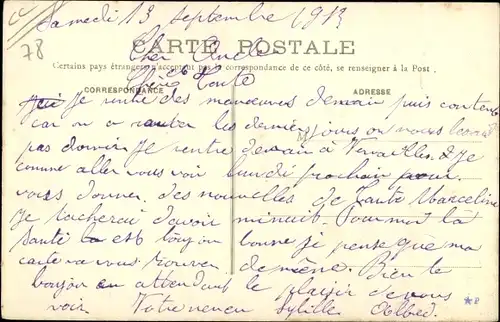 78
Samedi 13 septembre 1913
CARTE POSTALE
Cher Oncle
Certains pays étrangers n'acceptent pas la correspondance de ce côté, se renseigner à la Post
Chère Tante
CORRESPONDANCE
ADRESSE
Je rentre des manœuvres demain suis content
car on a les derniers jours on nous
pas dormir Je rentre demain à Versailles & Je
compte aller vous voir lundi prochain pour
vous donner des nouvelles de Tante Marceline
Je tacherai d'avoir minuit Pour moi la
santé est toujours bonne je pense que ma
carte va vous trouver de même. Bien le
bonjour en attendant le plaisir de vous
voir Votre neveu Albert